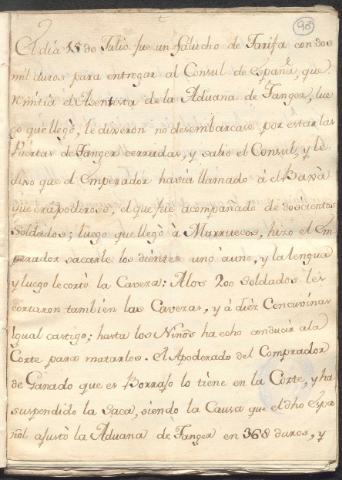 98
El dia 15 de Julio fue un falucho de Tarifa con doc
mil duros para entregar al Consul de España, que
remitia el Asentista de la Aduana de Tanger, lue
go que llegò, le dixeron no desembarcase por estar las
Puertas de Tanger cerradas, y salio el Consul, y le
dixo que el Emperador havia llamado à el Baxà
que era poderoso, el que fue acompañado de doscientos
Soldados; luego que llegò à Marruecos, hizo el Em
perador sacarle los dientes uno à uno, y la lengua
y luego le cortò la Cavera: A los 200 soldados les
cortaron tambien las Caveras, y à diez Concuvinas
igual castigo; hasta los Niños ha echo conducir a la
Corte para matarlos. El Apoderado del Comprador
de Ganado que es Borrafo lo tiene en la Corte, y ha
suspendido la Saca, siendo la Causa que el dho Espa
ñol ajustò la Aduana de Tanger en 368 duros, y